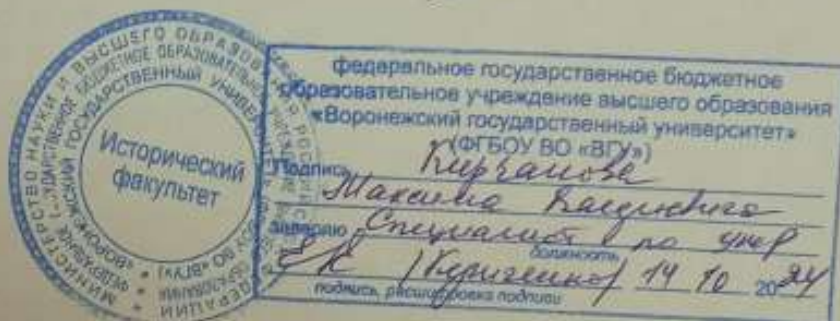 МИНИСТЕРСТВО НАУКИ И ВЫСШЕГО ОБРАЗОВАНИЯ РОССИЙСКОЙ ФЕДЕРАЦИИ
«ВОРОНЕЖСКИЙ ГОСУДАРСТВЕННЫЙ УНИВЕРСИТЕТ»
Исторический
факультет
федеральное государственное бюджетное
образовательное учреждение высшего образования
«Воронежский государственный университет»
(ФГБОУ ВО «ВГУ»)
Подпись Кирчанова
Максима
заверяю Специалист по
должность
14 10 2024
подпись, расшифровка подписи